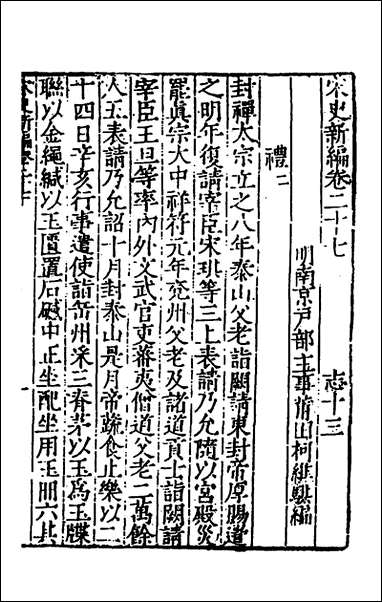 宋史新編卷二十七　志十三
明南京戸部主事莆田柯維騏編
禮二
封禪太宗立之八年泰山父老詣闕請東封帝厚賜遣
之明年復請宰臣宋琪等三上表請乃允隨以宮殿災
罷眞宗大中祥符元年兖州父老及諸道貢士詣闕請
宰臣王旦等率內外文武官吏蕃夷僧道父老二萬餘
人五表請乃允詔十月封泰山是月帝疏食止樂以二
十四日辛亥行事遣使詣岳州采三脊茅以玉爲玉牒
聯以金繩緘以玉匱置石䃭中正坐配坐用玉冊六其
宋史新編卷二十七